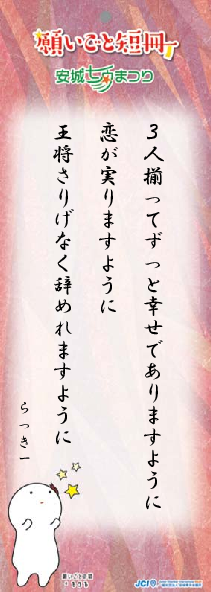 願いごと短冊
安城七夕まつり
3人揃ってずっと幸せでありますように
恋が実りますように
王将さりげなく辞めれますように
らっきー
願いごと短冊
JCI